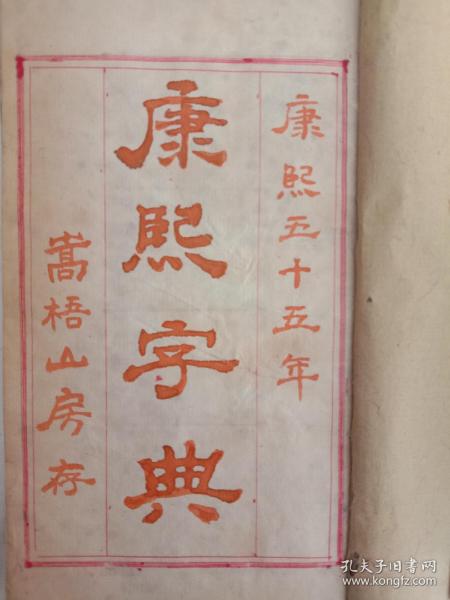 康熙五十五年
康熙字典
嵩梧山房存
孔夫子旧书网
www.kongfz.com